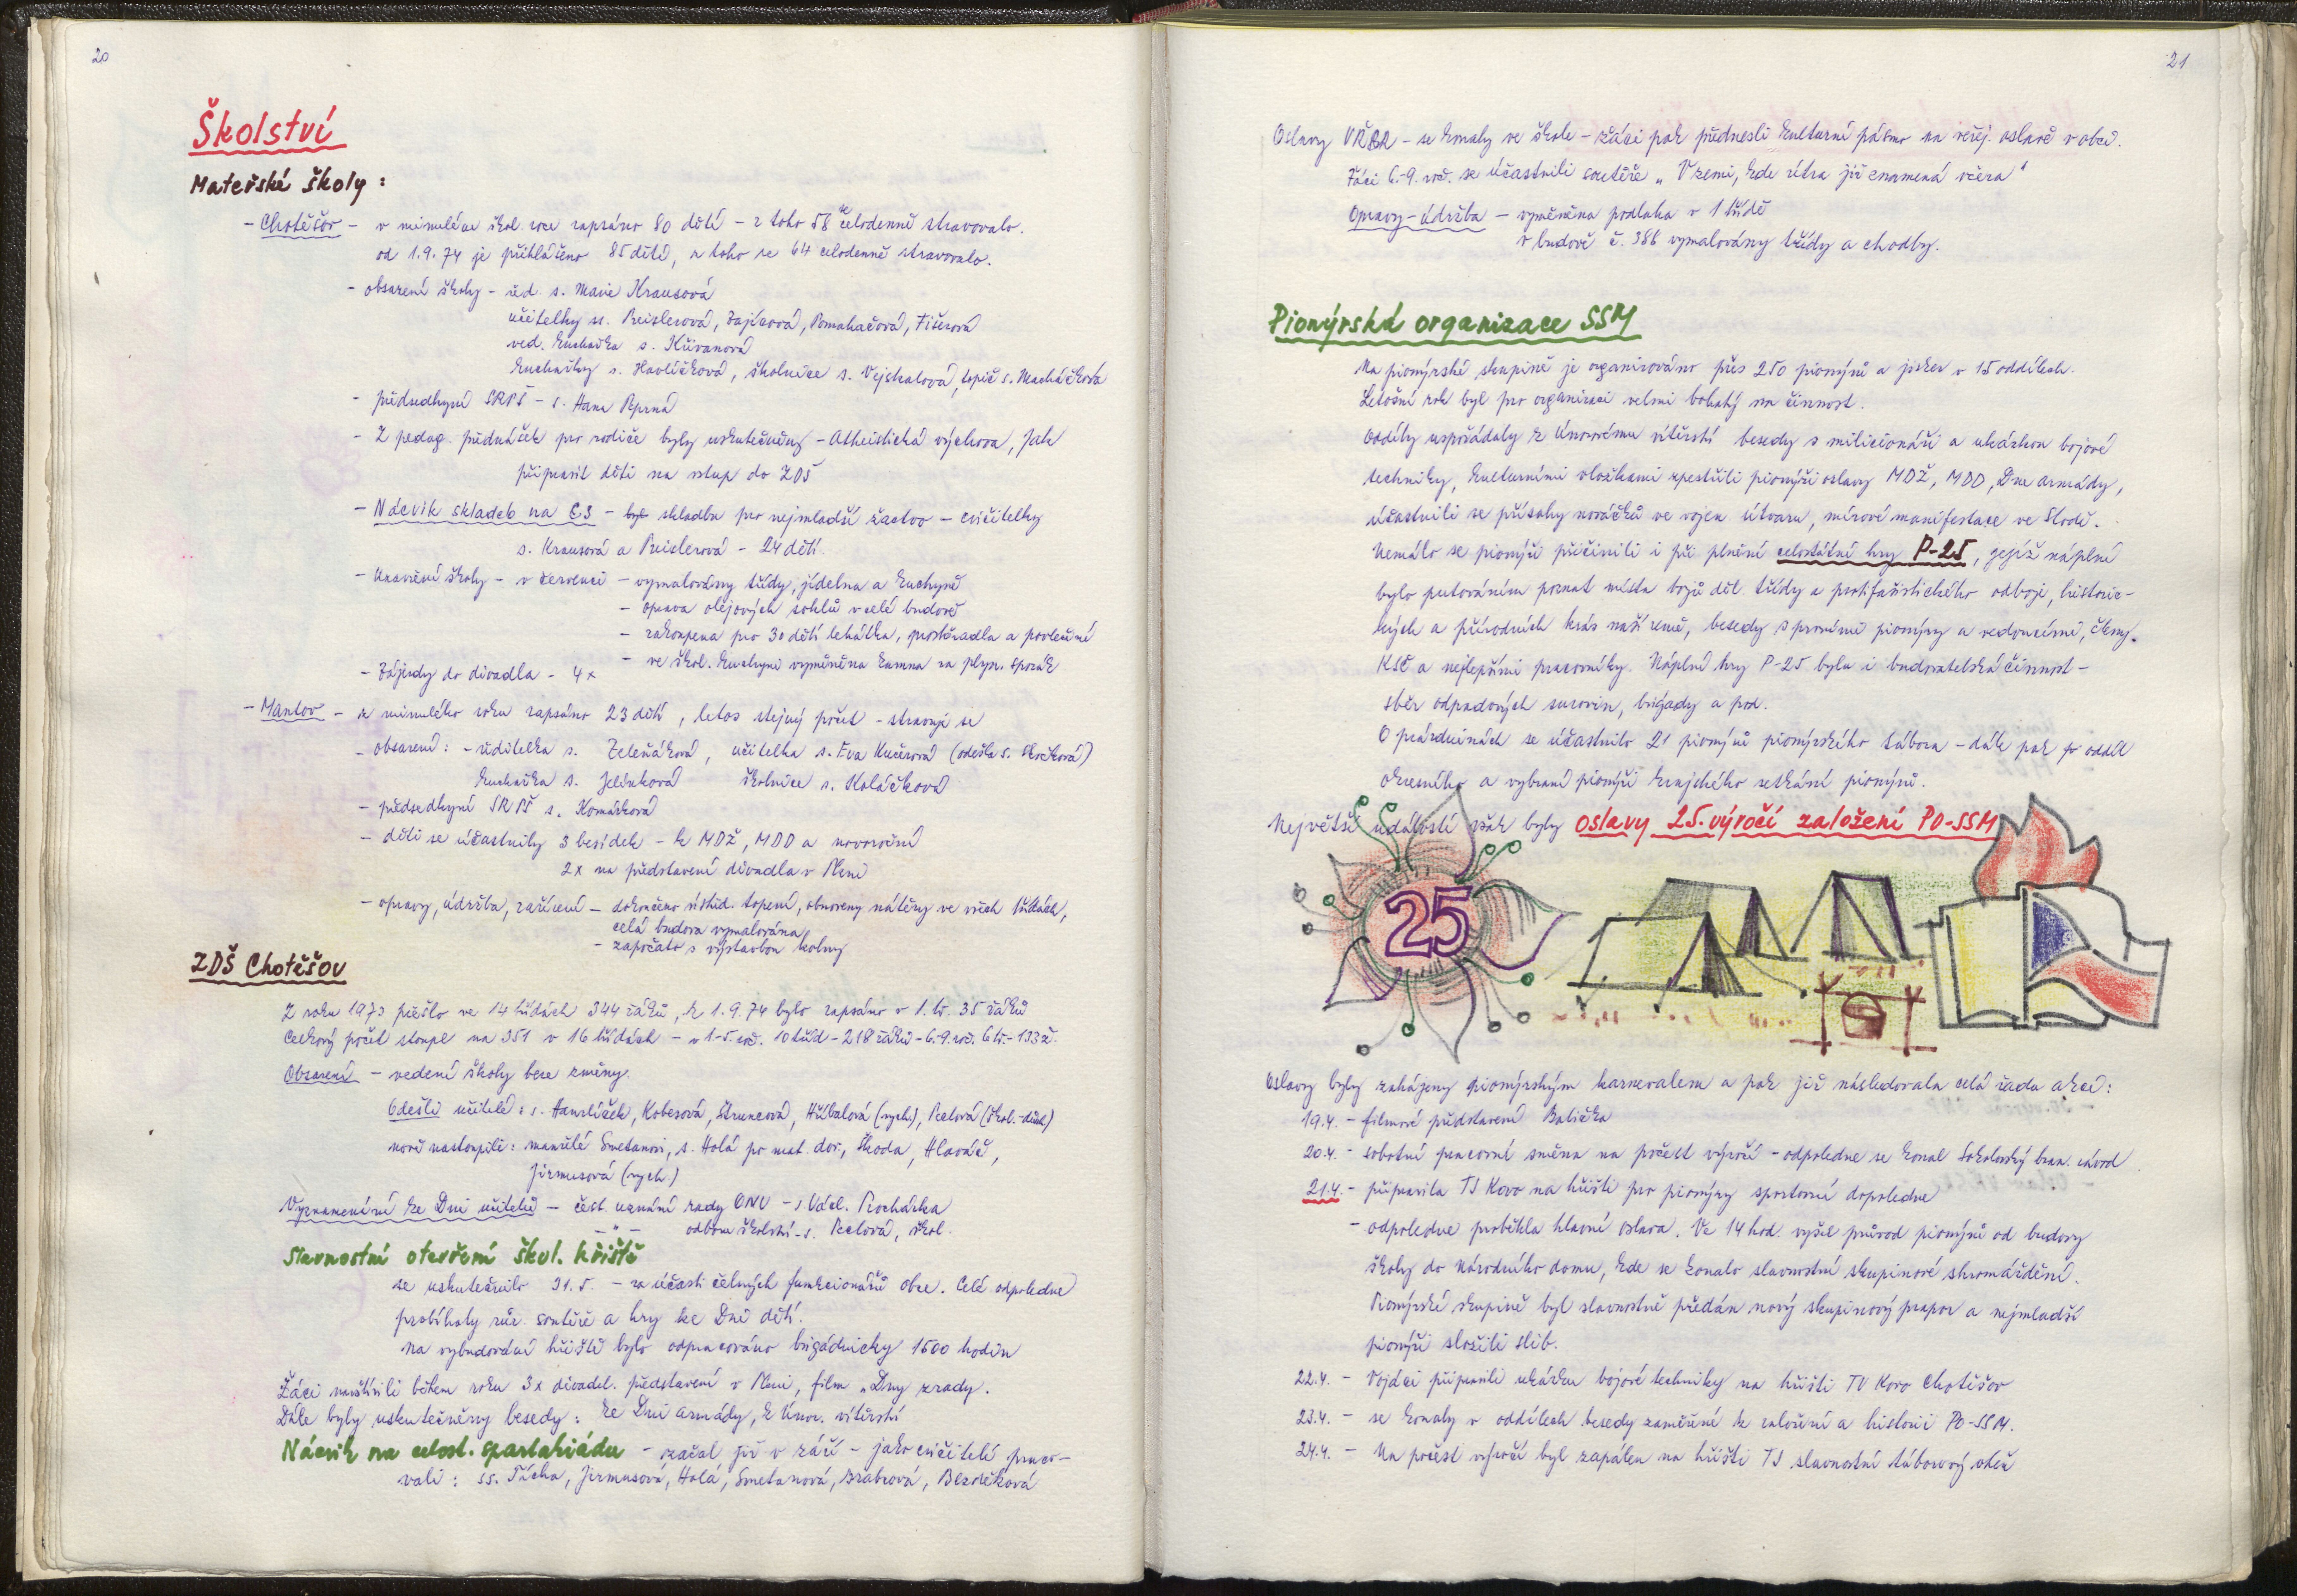 20
Školství
Mateřské školy :
- Chotěšov - v minulém škol. roce zapsáno 80 dětí - z toho 58 se celodenně stravovalo.
od 1.9.74 je přihlášeno 85 dětí, z toho se 64 celodenně stravovalo.
- obsazení školy - řed. s. Marie Krausová
učitelky ss. Preislerová, Zajícová, Pomahačová, Fišerová
ved. kuchařka s. Křivanová
kuchařky s. Havlíčková, školnice s. Vejskalová, topič s. Macháčková
- předsedkyní SRPŠ - s. Hana
- Z pedag. přednášek pro rodiče byly uskutečněny - Atheistická výchova, Jak
připravit děti na vstup do ZDŠ
- Nácvik skladeb na CS - skladba pro nejmladší žactvo - cvičitelky
s. Krausová a Preislerová - 24 dětí.
- Uzavření školy - v červenci - vymalovány třídy, jídelna a kuchyně
- oprava olejových soklů v celé budově
- zakoupena pro 30 dětí lehátka, prostěradla a povlečení
- ve škol. kuchyni vyměněna kamna za plyn. sporák
- Zájezdy do divadla - 4x
- Mantov - z minulého roku zapsáno 23 dětí, letos stejný počet - stravují se
- obsazení : - ředitelka s. Zeleňáková, učitelka s. Eva Kučerová (odešla s. Skočková)
kuchařka s. Jelínková školnice s. Koláčková
- předsedkyní SRPŠ s. Komárková
- děti se účastnily 3 besídek - k MDŽ, MDD a novoroční
2x na představení divadla v Plzni
- opravy, údržba, zařízení - dokončeno ústřed. topení, obnoveny nátěry ve všech třídách,
celá budova vymalována
- započato s výstavbou kolny
ZDŠ Chotěšov
Z roku 1973 přešlo ve 14 třídách 344 žáků, k 1.9.74 bylo zapsáno v 1. tř. 35 žáků
Celkový počet stoupl na 351 v 16 třídách - v 1-5. roč. 10 tříd - 218 žáků - 6.-9. roč. 6 tř. - 133 ž.
Obsazení - vedení školy beze změny.
Odešli učitelé : s. Hamrlíček, Kobesová, Štruncová, Hříbalová (vych.), Peclová (škol. druž.)
nově nastoupili : manželé Smetanovi, s. Holá po mat. dov., Škoda, Hlaváč,
Jirmusová (vych.)
Vyznamenání ke Dni učitelů - čest. uznání rady ONV - s Václ. Procházka
- " - odboru školství - s. Peclová, škol.
Slavnostní otevření škol. hřiště
se uskutečnilo 31.5. - za účasti čelných funkcionářů obce. Celé odpoledne
probíhaly růz. soutěže a hry ke Dni dětí.
Na vybudování hřiště bylo odpracováno brigádnicky 1500 hodin
Žáci navštívili během roku 3x divadel. představení v Plzni, film „Dny zrady.
Dále byly uskutečněny besedy : ke Dni armády, k Únor. vítězství
Nácvik na celost. spartakiádu - začal již v září - jako cvičitelé praco-
vali : ss. Tácha, Jirmusová, Holá, Smetanová, Brabcová, Bezděková
21
Oslavy VŘSR - se konaly ve škole - žáci pak přednesli kulturní pásmo na veřej. oslavě v obci.
Žáci 6.-9. roč. se účastnili soutěže „ V zemi, kde zítra již znamená včera "
Opravy - údržba - vyměněna podlaha v 1 třídě
v budově č. 386 vymalovány třídy a chodby.
Pionýrská organizace SSM
Na pionýrské skupině je organizováno přes 250 pionýrů a jisker v 15 oddílech.
Letošní rok byl pro organizaci velmi bohatý na činnost.
Oddíly uspořádaly k Únorovému vítězství besedy s milicionáři a ukázkou bojové
techniky, kulturními vložkami zpestřili pionýři oslavy MDŽ, MDD, Dne armády,
účastnili se přísahy nováčků ve vojen. útvaru, mírové manifestace ve Stodě.
Nemálo se pionýři přičinili i při plnění celostátní hry P-25, jejíž náplní
bylo putováním poznat místa bojů děl. třídy a protifašistického odboje, historic-
kých a přírodních krás naší země, besedy s prvními pionýry a vedoucími, členy
KSČ a nejlepšími pracovníky. Náplní hry P-25 byla i budovatelská činnost -
sběr odpadových surovin, brigády a pod.
O prázdninách se účastnilo 21 pionýrů pionýrského tábora - dále pak oddíl
okresního a vybraní pionýři krajského setkání pionýrů.
Největší událostí však byly oslavy 25. výročí založení PO-SSM
25
Oslavy byly zahájeny pionýrským karnevalem a pak již následovala celá řada akcí :
19.4. - filmové představení Balička
20.4. - sobotní pracovní směna na počest výročí - odpoledne se konal Sokolovský bran. závod
21.4. - připravila TJ Kovo na hřišti pro pionýry sportovní dopoledne
- odpoledne proběhla hlavní oslava. Ve 14 hod. vyšel průvod pionýrů od budovy
školy do Národního domu, kde se konalo slavnostní skupinové shromáždění.
Pionýrské skupině byl slavnostně předán nový skupinový prapor a nejmladší
pionýři složili slib.
22.4. - Vojáci připravili ukázku bojové techniky na hřišti TJ Kovo Chotěšov
23.4. - se konaly v oddílech besedy zaměřené k založení a historii PO-SSM.
24.4. - Na počest výročí byl zapálen na hřišti TJ slavnostní táborový oheň